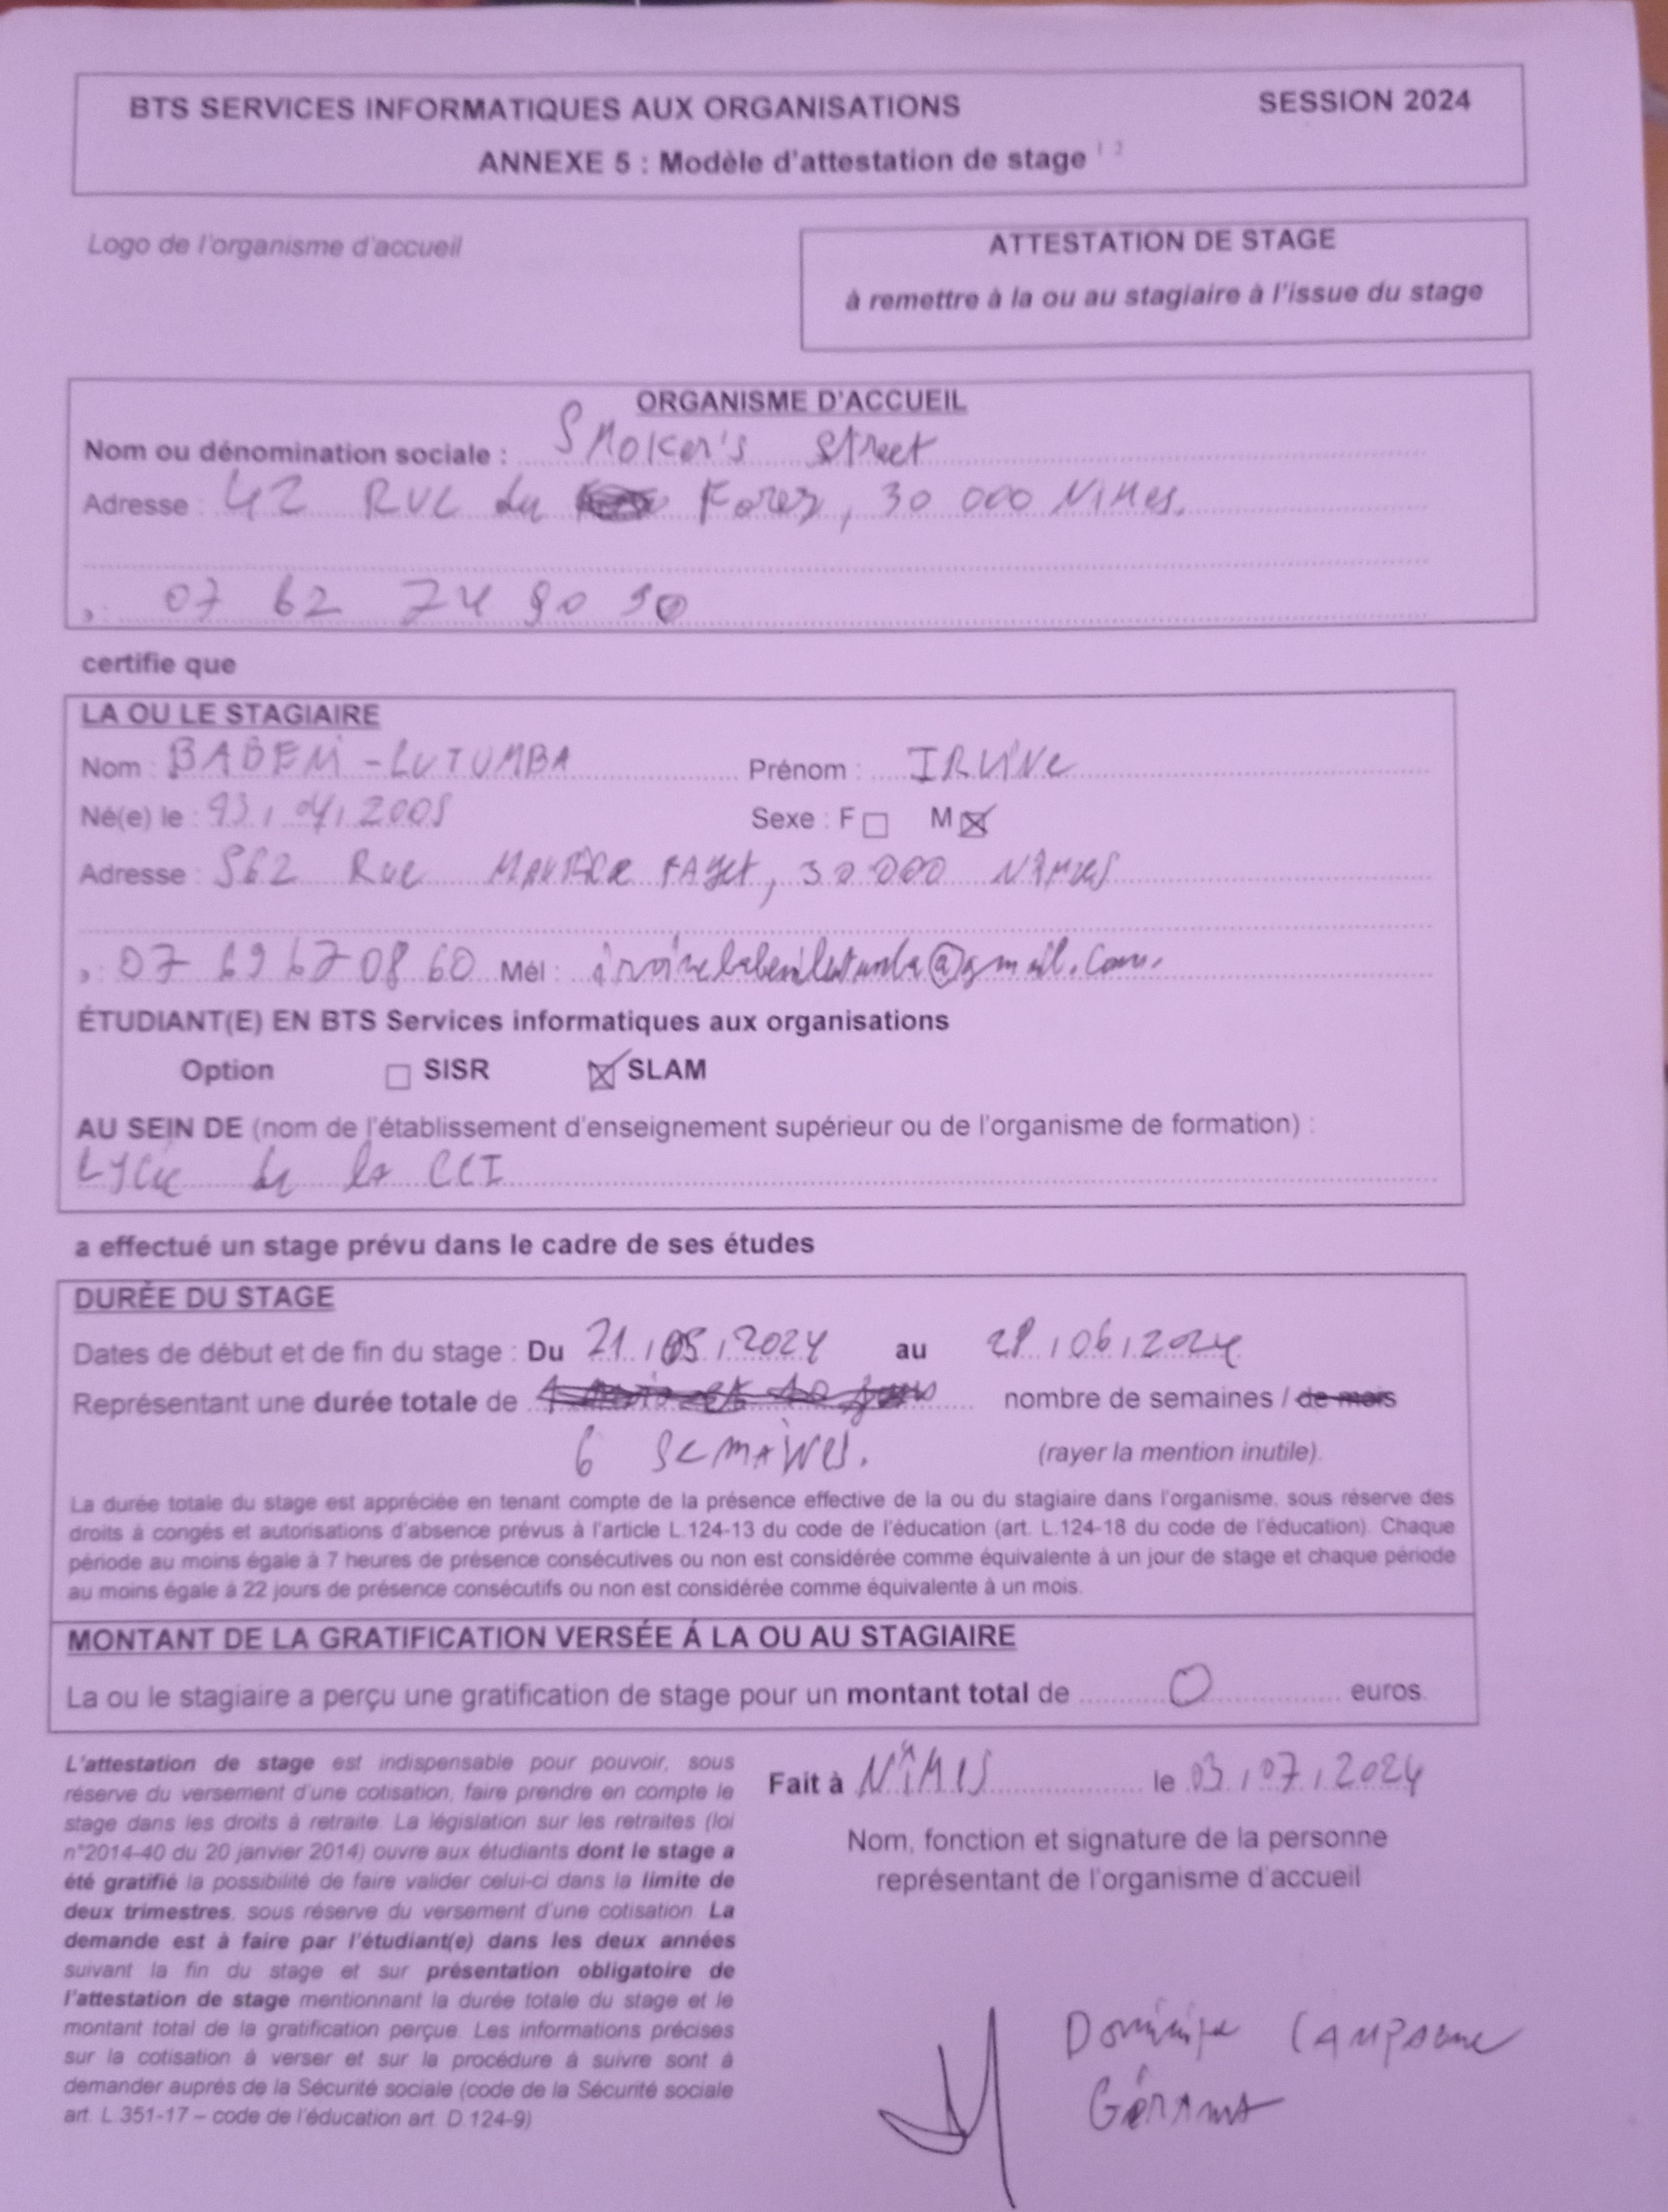 BTS SERVICES INFORMATIQUES AUX ORGANISATIONS SESSION 2024
ANNEXE 5 : Modèle d'attestation de stage 12
Logo de l'organisme d'accueil
ATTESTATION DE STAGE
à remettre à la ou au stagiaire à l'issue du stage
ORGANISME D'ACCUEIL
Nom ou dénomination sociale : Smoker's Street
Adresse : 42 Rue du Forez, 30 000 Nimes.
07 62 74 90 90
certifie que
LA OU LE STAGIAIRE
Nom : BABEM-LUTUMBA Prénom : IRVINE
Né(e) le : Sexe : F ☐ M ☒
Adresse : 562 Rue MAURICE FAYET, 30 000 NÎMES
07 69 67 08 60 Mél :
ÉTUDIANT(E) EN BTS Services informatiques aux organisations
Option ☐ SISR ☒ SLAM
AU SEIN DE (nom de l'établissement d'enseignement supérieur ou de l'organisme de formation) :
Lycée de la CCI
a effectué un stage prévu dans le cadre de ses études
DURÉE DU STAGE
Dates de début et de fin du stage : Du 21/05/2024 au 28/06/2024
Représentant une durée totale de nombre de semaines / de mois
6 semaines. (rayer la mention inutile).
La durée totale du stage est appréciée en tenant compte de la présence effective de la ou du stagiaire dans l'organisme, sous réserve des
droits à congés et autorisations d'absence prévus à l'article L.124-13 du code de l'éducation (art. L.124-18 du code de l'éducation). Chaque
période au moins égale à 7 heures de présence consécutives ou non est considérée comme équivalente à un jour de stage et chaque période
au moins égale à 22 jours de présence consécutifs ou non est considérée comme équivalente à un mois.
MONTANT DE LA GRATIFICATION VERSÉE Á LA OU AU STAGIAIRE
La ou le stagiaire a perçu une gratification de stage pour un montant total de 0 euros.
L'attestation de stage est indispensable pour pouvoir, sous
réserve du versement d'une cotisation, faire prendre en compte le
stage dans les droits à retraite. La législation sur les retraites (loi
n°2014-40 du 20 janvier 2014) ouvre aux étudiants dont le stage a
été gratifié la possibilité de faire valider celui-ci dans la limite de
deux trimestres, sous réserve du versement d'une cotisation. La
demande est à faire par l'étudiant(e) dans les deux années
suivant la fin du stage et sur présentation obligatoire de
l'attestation de stage mentionnant la durée totale du stage et le
montant total de la gratification perçue. Les informations précises
sur la cotisation à verser et sur la procédure à suivre sont à
demander auprès de la Sécurité sociale (code de la Sécurité sociale
art. L.351-17 – code de l'éducation art. D.124-9)
Fait à NÎMES le 03/07/2024
Nom, fonction et signature de la personne
représentant de l'organisme d'accueil
Dominique
Gérant